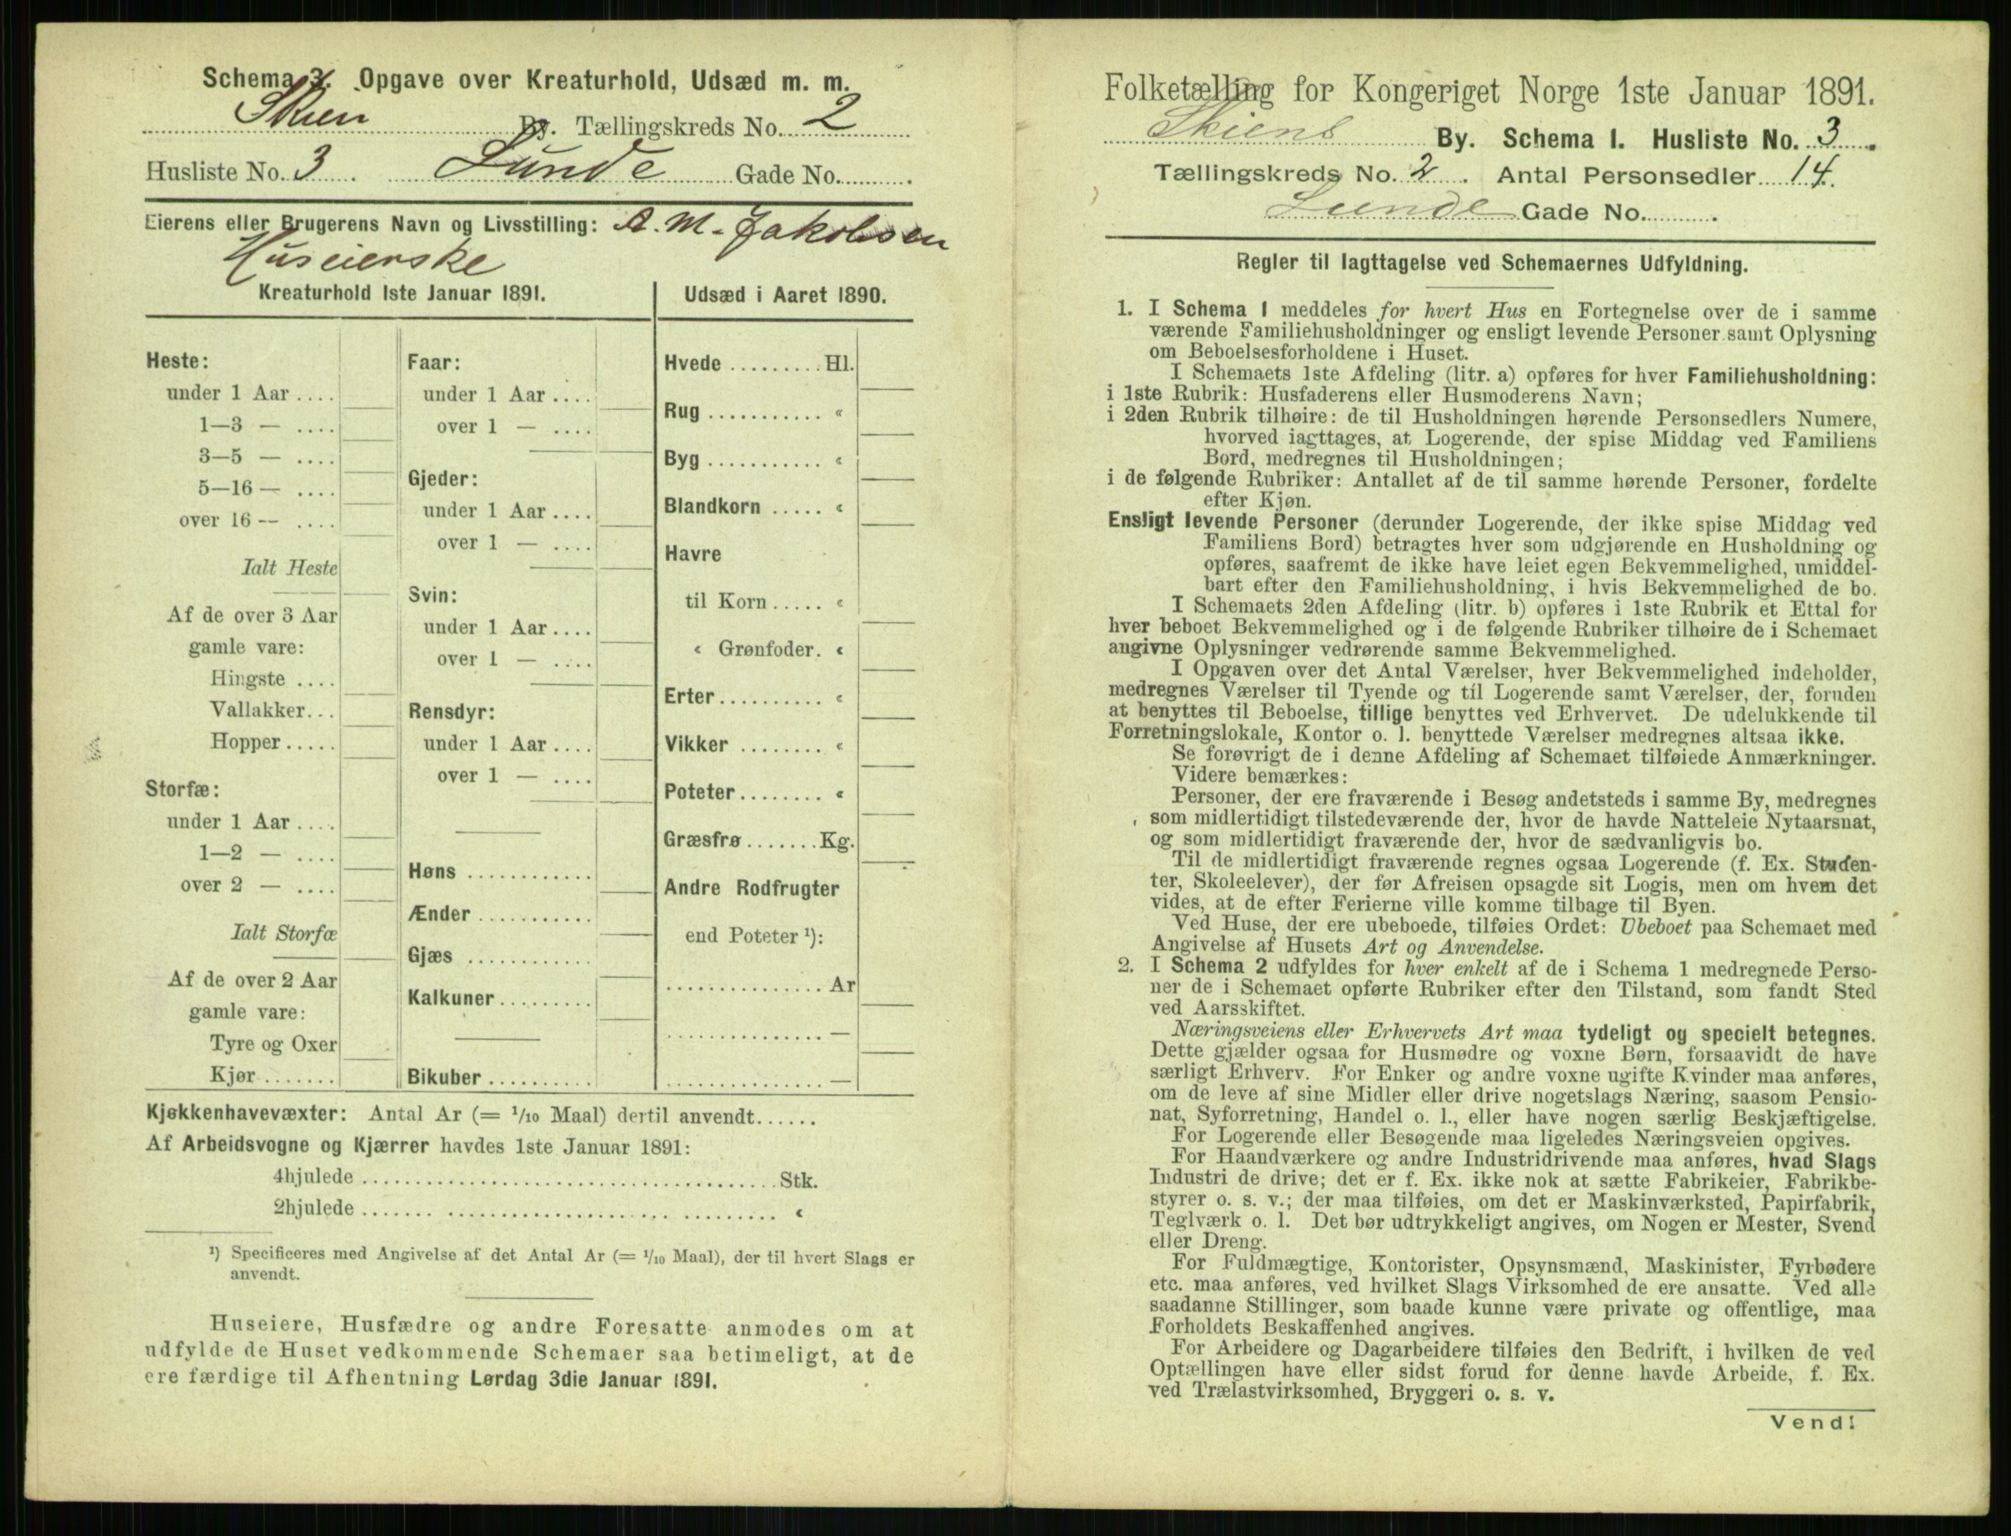 Schema 3. Opgave over Kreaturhold, Udsæd m. m.
Skien By. Tællingskreds No. 2
Husliste No. 3 Lunde Gade No.
Eierens eller Brugerens Navn og Livsstilling: A. M. Jakobsen
Huseierske
Kreaturhold 1ste Januar 1891.
Heste:
under 1 Aar ....
1—3 — ....
3—5 — ....
5—16 — ....
over 16 — ....
Ialt Heste
Af de over 3 Aar
gamle vare:
Hingste ....
Vallakker...
Hopper.....
Storfæ:
under 1 Aar ....
1—2 — ....
over 2 — ....
Ialt Storfæ
Af de over 2 Aar
gamle vare:
Tyre og Oxer
Kjør.......
Faar:
under 1 Aar ....
over 1 — ....
Gjeder:
under 1 Aar ....
over 1 — ....
Svin:
under 1 Aar ....
over 1 — ....
Rensdyr:
under 1 Aar ....
over 1 — ....
Høns ............
Ænder ...........
Gjæs ............
Kalkuner .........
Bikuber ..........
Udsæd i Aaret 1890.
Hvede ......... Hl.
Rug ........... «
Byg ........... «
Blandkorn ..... «
Havre
til Korn ..... «
« Grønfoder. «
Erter.......... «
Vikker ........ «
Poteter........ «
Græsfrø ....... Kg.
Andre Rodfrugter
end Poteter ¹):
............... Ar
............... —
............... —
Kjøkkenhavevæxter: Antal Ar (= 1/10 Maal) dertil anvendt......
Af Arbeidsvogne og Kjærrer havdes 1ste Januar 1891:
4hjulede ...................................... Stk.
2hjulede ...................................... «
¹) Specificeres med Angivelse af det Antal Ar (= 1/10 Maal), der til hvert Slags er
anvendt.
Huseiere, Husfædre og andre Foresatte anmodes om at
udfylde de Huset vedkommende Schemaer saa betimeligt, at de
ere færdige til Afhentning Lørdag 3die Januar 1891.
Folketælling for Kongeriget Norge 1ste Januar 1891.
Skiens By. Schema I. Husliste No. 3.
Tællingskreds No. 2. Antal Personsedler 14.
Lunde Gade No.
Regler til Iagttagelse ved Schemaernes Udfyldning.
1. I Schema 1 meddeles for hvert Hus en Fortegnelse over de i samme
værende Familiehusholdninger og ensligt levende Personer samt Oplysning
om Beboelsesforholdene i Huset.
I Schemaets 1ste Afdeling (litr. a) opføres for hver Familiehusholdning:
i 1ste Rubrik: Husfaderens eller Husmoderens Navn;
i 2den Rubrik tilhøire: de til Husholdningen hørende Personsedlers Numere,
hvorved iagttages, at Logerende, der spise Middag ved Familiens
Bord, medregnes til Husholdningen;
i de følgende Rubriker: Antallet af de til samme hørende Personer, fordelte
efter Kjøn.
Ensligt levende Personer (derunder Logerende, der ikke spise Middag ved
Familiens Bord) betragtes hver som udgjørende en Husholdning og
opføres, saafremt de ikke have leiet egen Bekvemmelighed, umiddel-
bart efter den Familiehusholdning, i hvis Bekvemmelighed de bo.
I Schemaets 2den Afdeling (litr. b) opføres i 1ste Rubrik et Ettal for
hver beboet Bekvemmelighed og i de følgende Rubriker tilhøire de i Schemaet
angivne Oplysninger vedrørende samme Bekvemmelighed.
I Opgaven over det Antal Værelser, hver Bekvemmelighed indeholder,
medregnes Værelser til Tyende og til Logerende samt Værelser, der, foruden
at benyttes til Beboelse, tillige benyttes ved Erhvervet. De udelukkende til
Forretningslokale, Kontor o. l. benyttede Værelser medregnes altsaa ikke.
Se forøvrigt de i denne Afdeling af Schemaet tilføiede Anmærkninger.
Videre bemærkes:
Personer, der ere fraværende i Besøg andetsteds i samme By, medregnes
som midlertidigt tilstedeværende der, hvor de havde Natteleie Nytaarsnat,
og som midlertidigt fraværende der, hvor de sædvanligvis bo.
Til de midlertidigt fraværende regnes ogsaa Logerende (f. Ex. Studen-
ter, Skoleelever), der før Afreisen opsagde sit Logis, men om hvem det
vides, at de efter Ferierne ville komme tilbage til Byen.
Ved Huse, der ere ubeboede, tilføies Ordet: Ubeboet paa Schemaet med
Angivelse af Husets Art og Anvendelse.
2. I Schema 2 udfyldes for hver enkelt af de i Schema 1 medregnede Perso-
ner de i Schemaet opførte Rubriker efter den Tilstand, som fandt Sted
ved Aarsskiftet.
Næringsveiens eller Erhvervets Art maa tydeligt og specielt betegnes.
Dette gjælder ogsaa for Husmødre og voxne Børn, forsaavidt de have
særligt Erhverv. For Enker og andre voxne ugifte Kvinder maa anføres,
om de leve af sine Midler eller drive nogetslags Næring, saasom Pensio-
nat, Syforretning, Handel o. l., eller have nogen særlig Beskjæftigelse.
For Logerende eller Besøgende maa ligeledes Næringsveien opgives.
For Haandværkere og andre Industridrivende maa anføres, hvad Slags
Industri de drive; det er f. Ex. ikke nok at sætte Fabrikeier, Fabrikbe-
styrer o. s. v.; der maa tilføies, om det er Maskinværksted, Papirfabrik,
Teglværk o. l. Det bør udtrykkeligt angives, om Nogen er Mester, Svend
eller Dreng.
For Fuldmægtige, Kontorister, Opsynsmænd, Maskinister, Fyrbødere
etc. maa anføres, ved hvilket Slags Virksomhed de ere ansatte. Ved alle
saadanne Stillinger, som baade kunne være private og offentlige, maa
Forholdets Beskaffenhed angives.
For Arbeidere og Dagarbeidere tilføies den Bedrift, i hvilken de ved
Optællingen have eller sidst forud for denne havde Arbeide, f. Ex.
ved Trælastvirksomhed, Bryggeri o. s. v.
Vend!